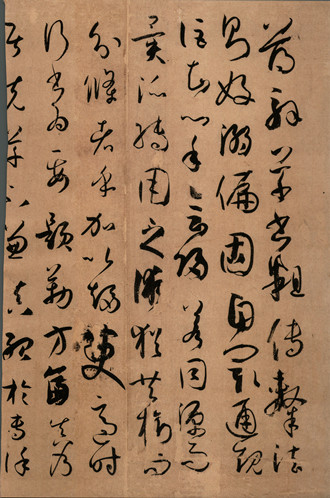 薄解草書粗傳隸法
則好溺偏固自閡通規
詎知心手會歸若同源而
異派轉用之術猶共樹而
分條者乎加以趨變適時
行書為要題勒方畐真乃
居先草不兼真殆於專謹